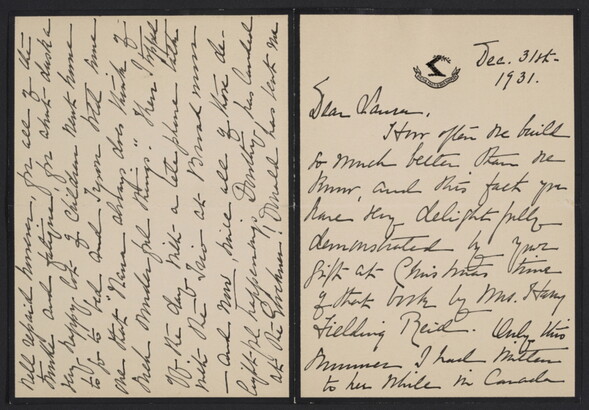 Dec. 31st-
1931.
Dear Laura,
How often we build
so much better than we
know, and this fact you
have very delightfully
demonstrated by your
gift at Christmas time
of that book by Mrs. Harry
Fielding Reid. Only this
summer I had written
to her while in Canada
well repaid however, for all of the
trouble and fatigue, for about dusk a
very happy lot of children went home
to go to bed and Tyson told me
one that "Nana always does think of
such wonderful things." Then I topped
off the day with a telephone talk
with the Trio at Broad moor
– and now, while all of those de-
lightful happenings, Dorothy has landed
at the ! Donald has left me